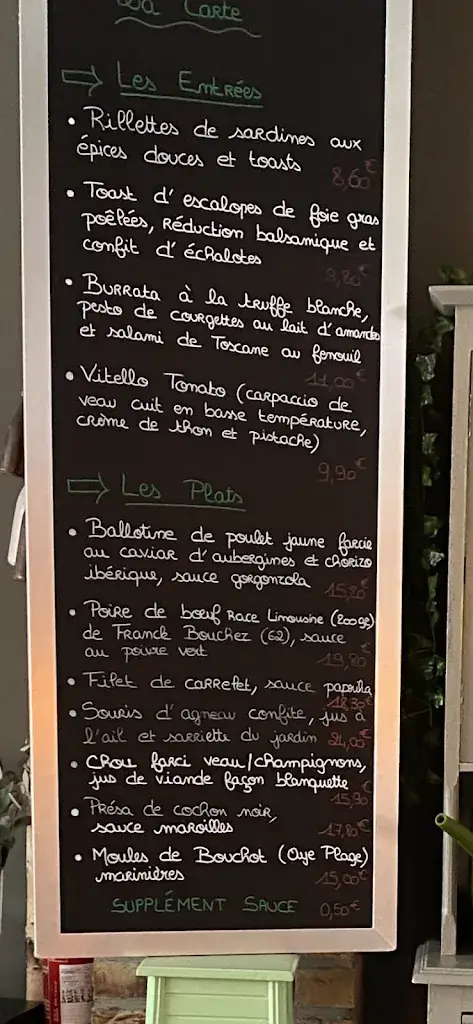 La Carte
⇒ Les Entrées
• Rillettes de sardines aux
épices douces et toasts
8,60€
• Toast d'escalopes de foie gras
poêlées, Réduction balsamique et
confit d'échalotes
9,80€
• Burrata à la truffe blanche,
pesto de courgettes au lait d'amandes
et salami de Toscane au fenouil
11,00€
• Vitello Tonato (carpaccio de
veau cuit en basse température,
crème de thon et pistache)
9,90€
⇒ Les Plats
• Ballotine de poulet jaune farcie
au caviar d'aubergines et chorizo
ibérique, sauce gorgonzola
15,20€
• Poire de bœuf Race Limousine (200gr)
de Franck Bouchez (62), sauce
au poivre vert
19,80€
• Filet de carrelet, sauce paprika
18,30€
• Souris d'agneau confite, jus à
l'ail et sarriette du jardin 21,00€
• Chou farci veau/champignons,
jus de viande façon blanquette
15,90€
• Présa de cochon noir,
sauce maroilles
17,80€
• Moules de Bouchot (Oye Plage)
marinières
15,00€
SUPPLÉMENT SAUCE 0,50€